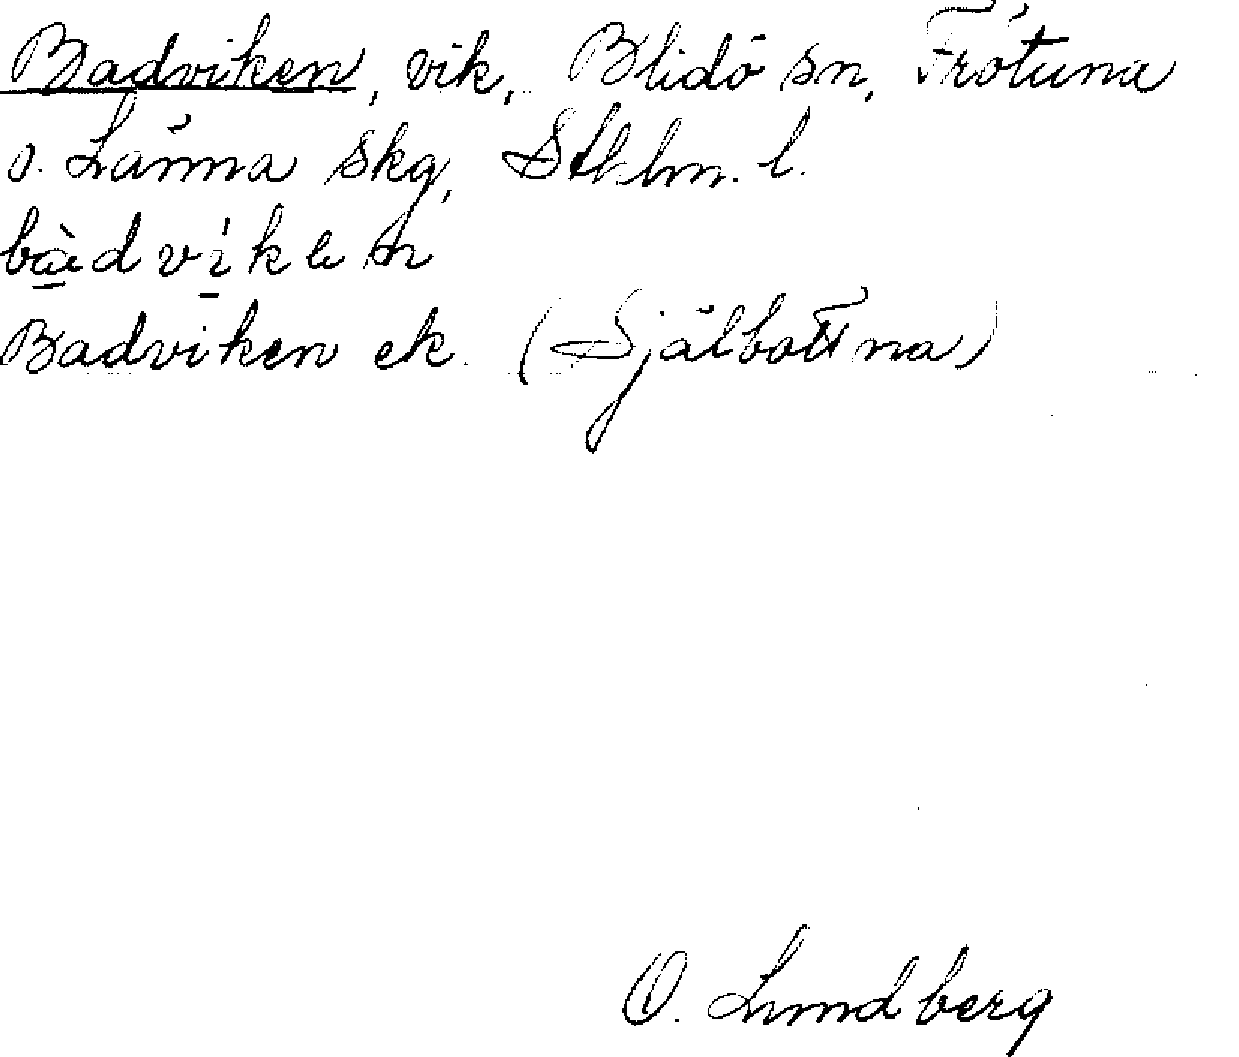 Badviken, vik, Blidö sn, Frötuna
o. Länna skg, Sthlm. l.
bàdviken
Badviken ek. (Själbottna)
O. Lundberg